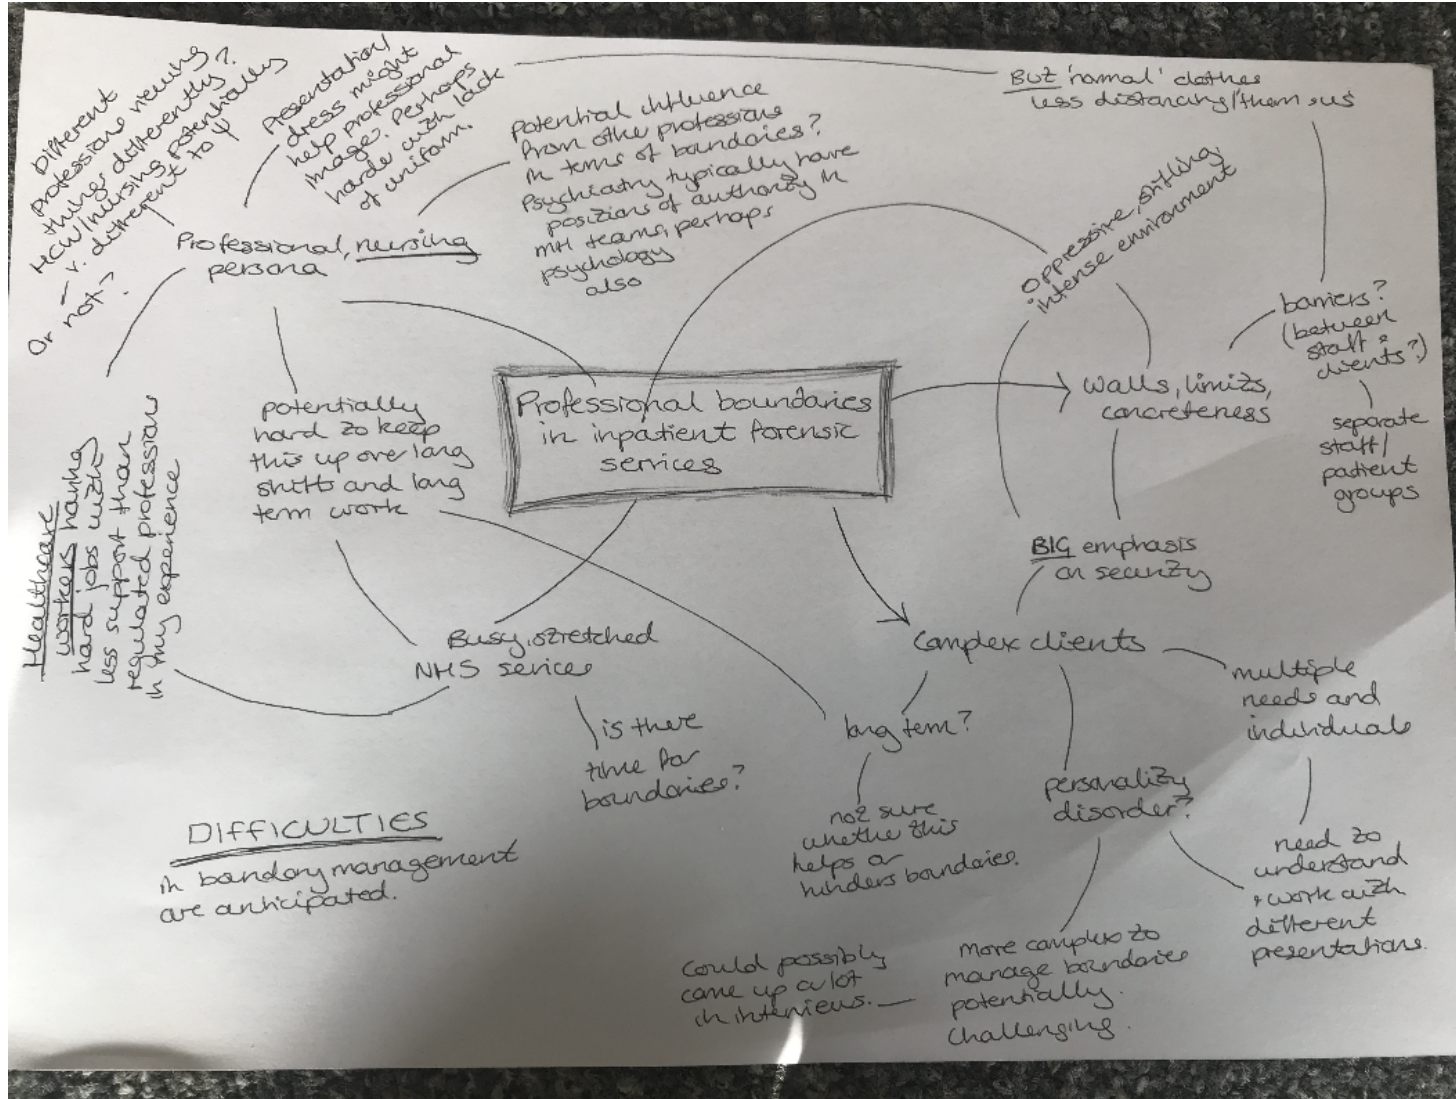 Different
professions viewing
things differently?
HCW/nursing potentially
– v. different to Ψ
Or not?
Presentation/
dress might
help professional
image. Perhaps
harder with lack
of uniform.
Potential influence
from other professions
in terms of boundaries?
Psychiatry typically have
positions of authority in
MH teams, perhaps
psychology
also
BUT 'normal' clothes
less distancing/them + us
Professional, nursing
persona
Oppressive, stifling,
intense environment
barriers?
(between
staff +
clients?)
separate
staff/
patient
groups
walls, limits,
concreteness
Professional boundaries
in inpatient forensic
services
potentially
hard to keep
this up over long
shifts and long
term work
Healthcare
workers having
hard jobs with
less support than
regulated professions
in my experience
BIG emphasis
on security
Busy, stretched
NHS services
is there
time for
boundaries?
Complex clients
multiple
needs and
individuals
long term?
not sure
whether this
helps or
hinders boundaries.
personality
disorder?
need to
understand
+ work with
different
presentations.
More complex to
manage boundaries
potentially.
Challenging.
Could possibly
come up a lot
in interviews.
DIFFICULTIES
in boundary management
are anticipated.